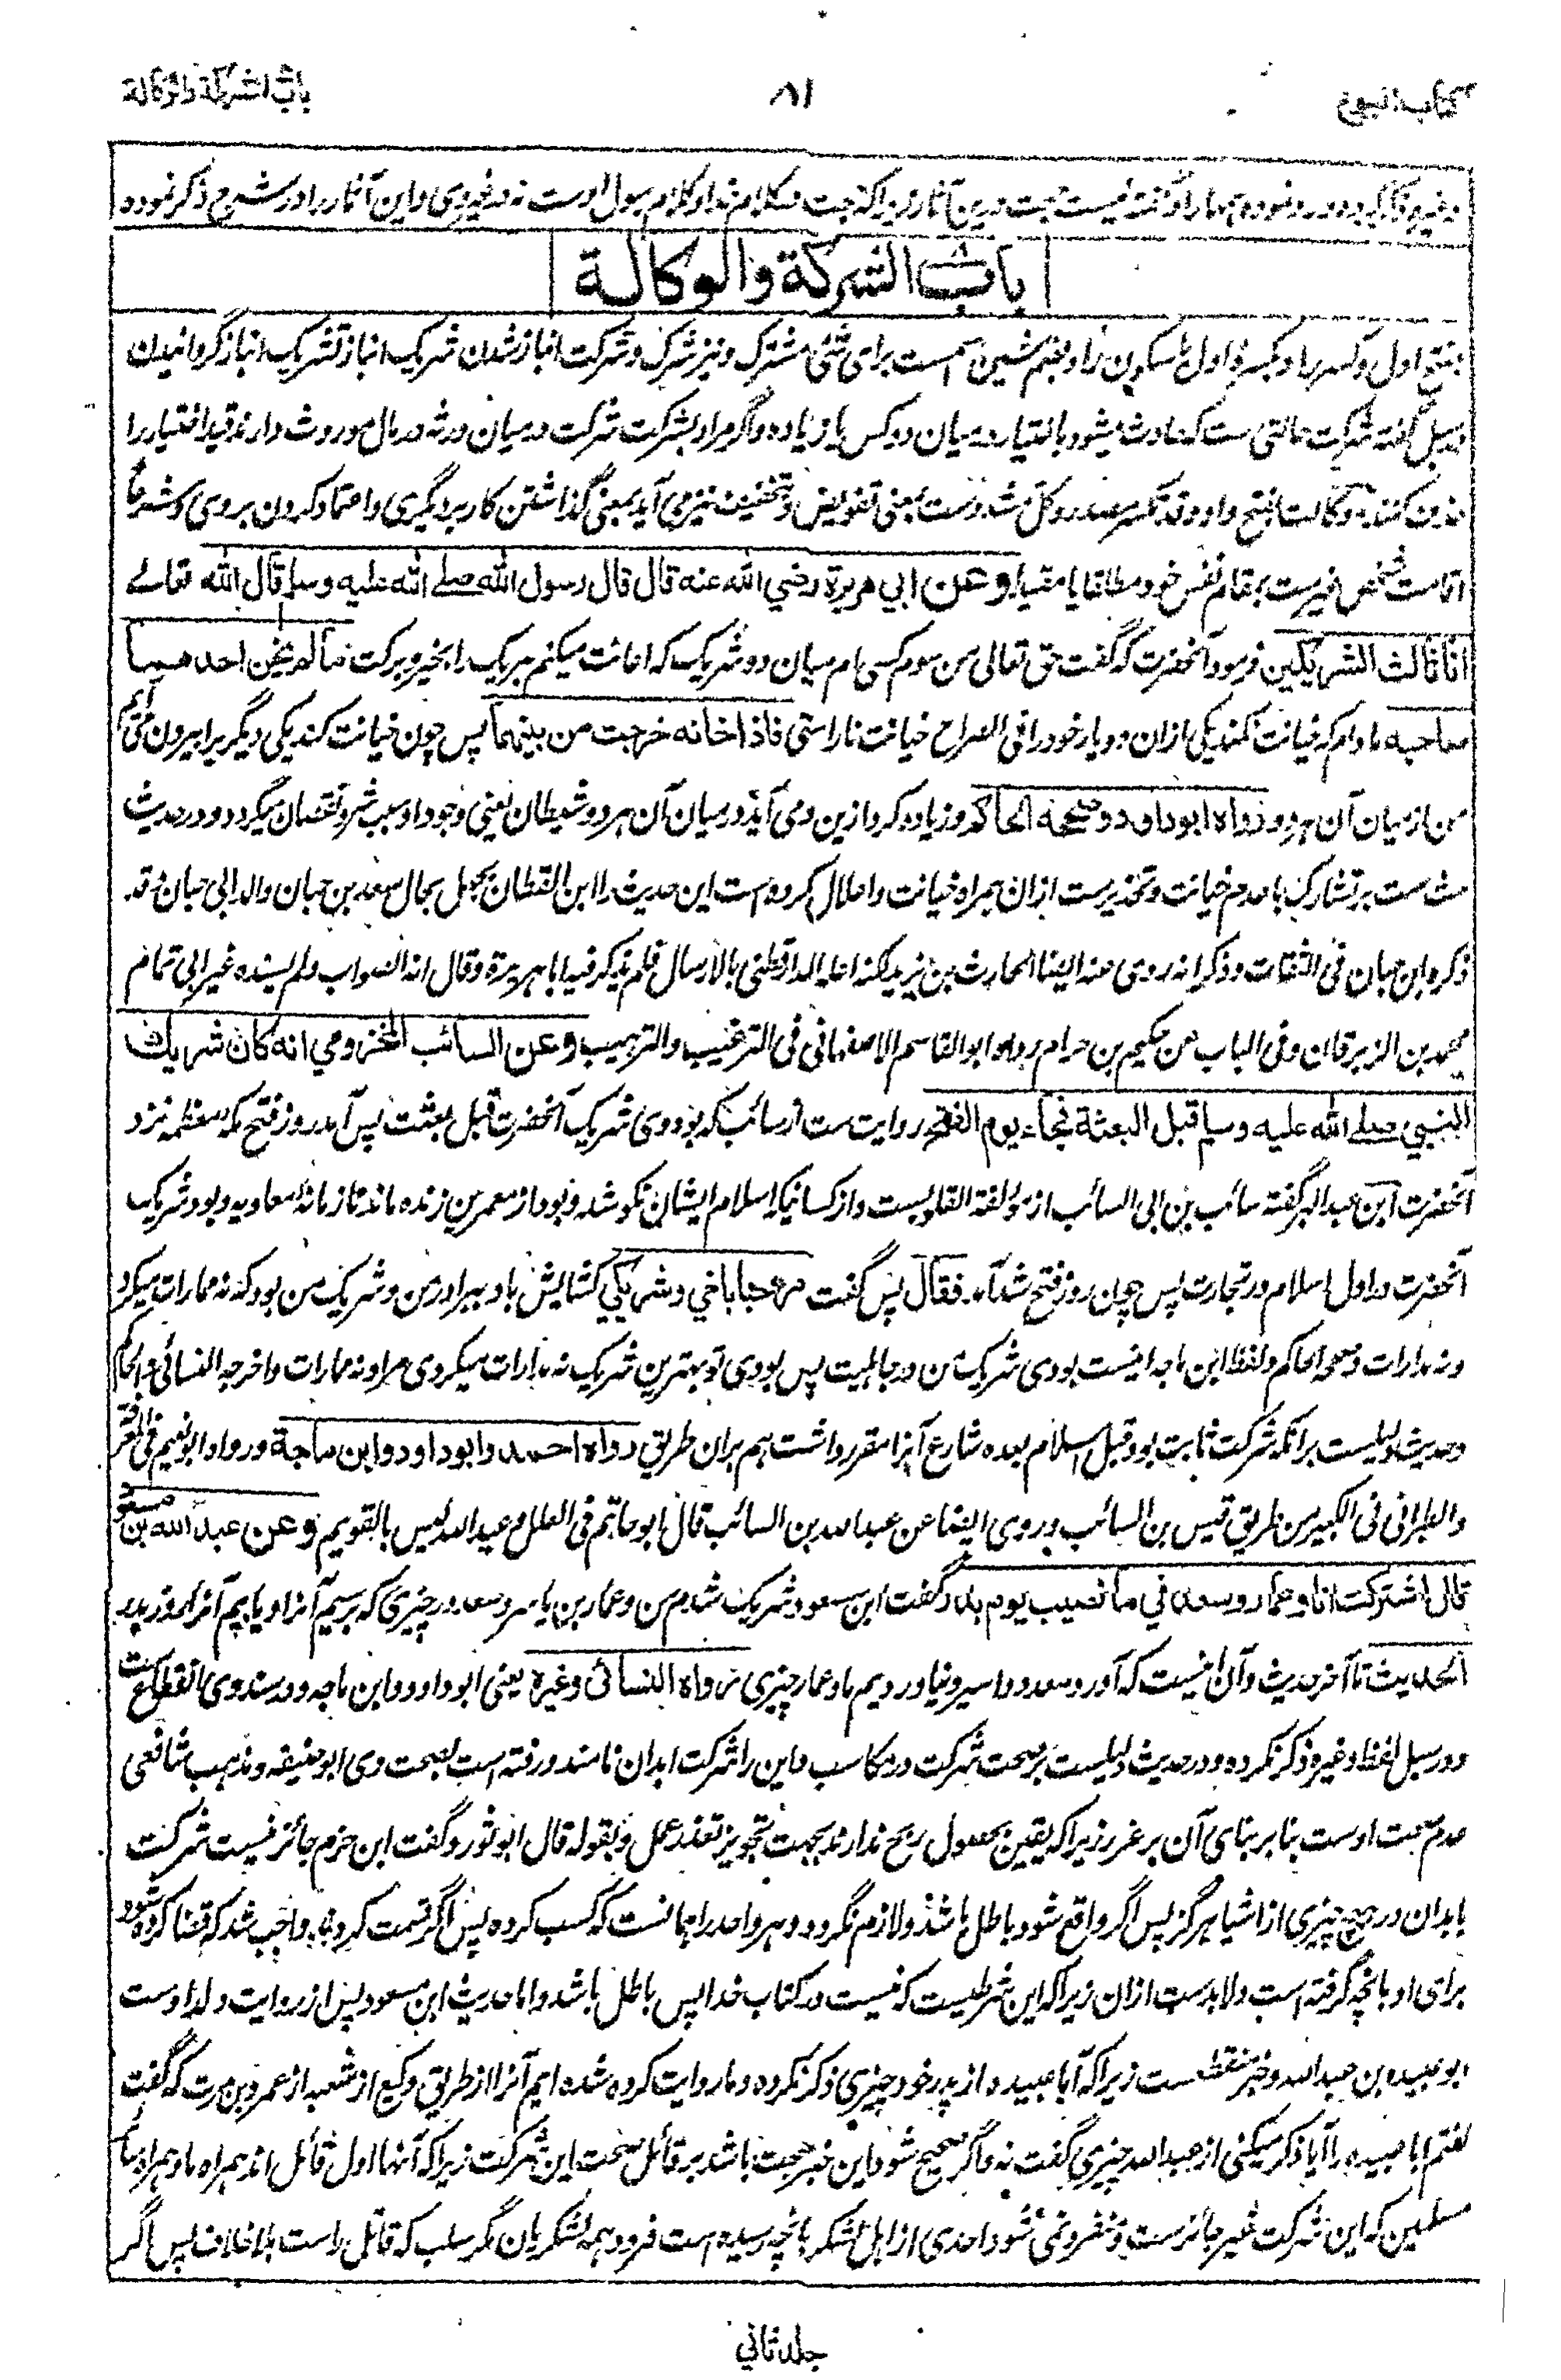 کتاب البیوع
۸۱
باب الشرکة والوکالة
وغیره که رد نموده همه را و گفته نیست حجت درین آثار زیراکه حجت در کلام خدا و کلام رسول اوست نه در غیر وی و این آثار را در شرح ذکر نموده
باب الشركة والوكالة
بفتح اول و کسر را و بکسر اول با سکون را و بضم شین اسم ست برای شئ مشترک و نیز شرک و شرکت انباز شدن شریک انباز تشریک انباز گردانیدن
در سبل گفته شرکت حالتی ست که حادث میشود باختیار در میان دو کس یا زیاده و اگر مراد بشرکت شرکت در میان ورثه در مال موروث دارند قید اختیار را
حذف کنند و وکالت بفتح واو و قد تکسر مصدر وکل مشدد ست بمعنی تفویض و تخفیف نیز می آید بمعنی گذاشتن کار بر دیگری و اعتماد کردن بر وی و شرعا
اقامت شخص غیرست بمقام نفس خود مطلقا یا مقیدا وعن ابي هريرة رضي الله عنه قال قال رسول الله صلى الله عليه وسلم قال الله تعالے
انا ثالث الشريكين فرمود آنحضرت که گفت حق تعالی من سوم کسی ام میان دو شریک که اعانت میکنم هر یک را بخیر و برکت ما لم يخن احدهما
صاحبه مادام که خیانت نکند یکی ازان دو یار خود را فی الصراح خیانت ناراستی فاذا خانه خرجت من بينهما پس چون خیانت کند یکی دیگر برا بیرون می آیم
من از میان آن هر دو رواه ابوداود وصححه الحاکم و زیاده کرد رزین و می آید در میان آن هر دو شیطان یعنی وجود او سبب شر و نقصان میگردد و در حدیث
حث ست بر تشارک با عدم خیانت و تحذیرست ازان همراه خیانت و اعلال کرده است این حدیث را ابن القطان بجهل بحال سعید بن حبان والد ابی حبان وقد
ذکره ابن حبان فی الثقات و ذکر انه روی عنه ایضا الحارث بن یزید لکنه اعله الدارقطنی بالارسال فلم یذکر فیه ابا هریرة و قال انه الصواب ولم یسنده غیر ابی تمام
محمد بن الزبرقان و فی الباب من حکیم بن حزام رواه ابو القاسم الاصفهانی فی الترغیب و الترهیب وعن السائب المخزومي انه كان شريك
النبي صلى الله عليه وسلم قبل البعثة فجاء يوم الفتح روایت ست از سائب که بود وی شریک آنحضرت قبل بعثت پس آمد روز فتح مکه معظمه نزد
آنحضرت ابن عبد البر گفته سائب بن ابی السائب از مؤلفة القلوبست و از کسانیکه اسلام ایشان نکو شد و بود از معمرین زنده ماند تا زمانه معاویه و بود شریک
آنحضرت در اول اسلام در تجارت پس چون روز فتح شد آمد فقال پس گفت مرحبا باخي وشريكي کشایش باد ببرادر من و شریک من بود که نه ممارات میکرد
و نه مدارات و صححه الحاکم و لفظ ابن ماجه اینست بودی شریک من در جاهلیت پس بودی تو بهترین شریک نه مدارات میکردی مرا و نه ممارات و اخرجه النسائی و الحاکم
و حدیث دلیلست برآنکه شرکت ثابت بود قبل اسلام بعده شارع آنرا مقرر داشت هم بران طریق رواه احمد وابوداود وابن ماجة و رواه ابو نعیم فی المعرفة
و الطبرانی فی الکبیر من طریق قیس بن السائب و روی ایضا عن عبد الله بن السائب قال ابو حاتم فی العلل و عبد الله لیس بالقویم وعن عبد الله بن مسعود
قال اشتركت انا وعمار وسعد في ما نصيب يوم بدر گفت ابن مسعود شریک شدم من و عمار بن یاسر و سعد در چیزی که برسیم آنرا و یابیم آنرا روز بدر
الحديث تا آخر حدیث و آن اینست که آورد سعد دو اسیر و نیاوردیم ما و عمار چیزی رواه النسائى وغيره یعنی ابوداود و ابن ماجه و در سند وی انقطاع ست
و در سبل لفظ وغیره ذکر نکرده و در حدیث دلیلست بر صحت شرکت در مکاسب و این را شرکت ابدان نامند و رفته است بصحت وی ابو حنیفه و مذهب شافعی
عدم صحت اوست بنا بر بنای آن بر غرر زیراکه یقین بحصول ربح ندارند بجهت تجویز تعذر عمل و بقوله قال ابو ثور و گفت ابن حزم جائز نیست شرکت
بابدان در هیچ چیزی از اشیا هرگز پس اگر واقع شود باطل باشد و لازم نگردد و هر واحد را همانست که کسب کرده پس اگر قسمت کردند واجب شد که قضا کرده شود
برای او بآنچه گرفته است و لابدست ازان زیراکه این شرطیست که نیست در کتاب خدا پس باطل باشد و اما حدیث ابن مسعود پس از روایت ولد اوست
ابو عبیده بن عبد الله و خبر منقطع ست زیراکه ابا عبیده از پدر خود چیزی ذکر نکرده و ما روایت کرده شده ایم آنرا از طریق وکیع از شعبه از عمرو بن مرت که گفت
گفتم ابا عبیده را آیا ذکر میکنی از عبد الله چیزی گفت نه و اگر صحیح شود این خبر حجت باشد بر قائل صحت این شرکت زیراکه آنها اول قائل اند همراه ما و همراه سائر
مسلمین که این شرکت غیر جائزست و منفرد نمی شود احدی از اهل لشکر بآنچه رسیده است فرود همه لشکریان مگر سلب که قاتل راست بلا خلاف پس اگر
جلد ثاني